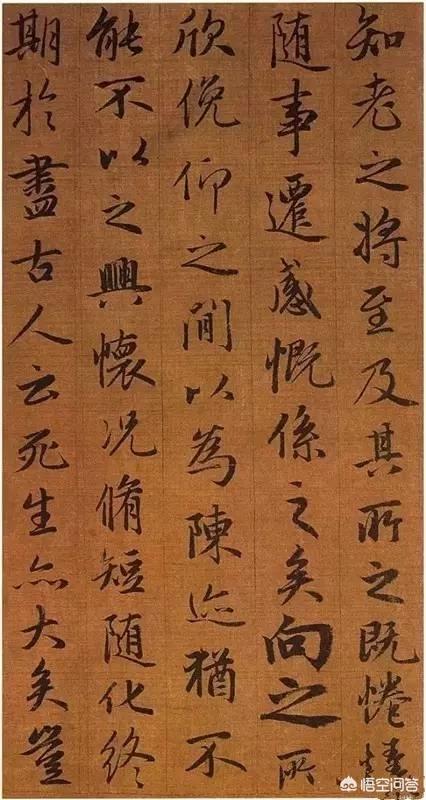 知老之將至及其所之既惓情
随事遷感慨係之矣向之所
欣俛仰之間以為陳迹猶不
能不以之興懷况脩短随化終
期於盡古人云死生亦大矣豈
悟空问答